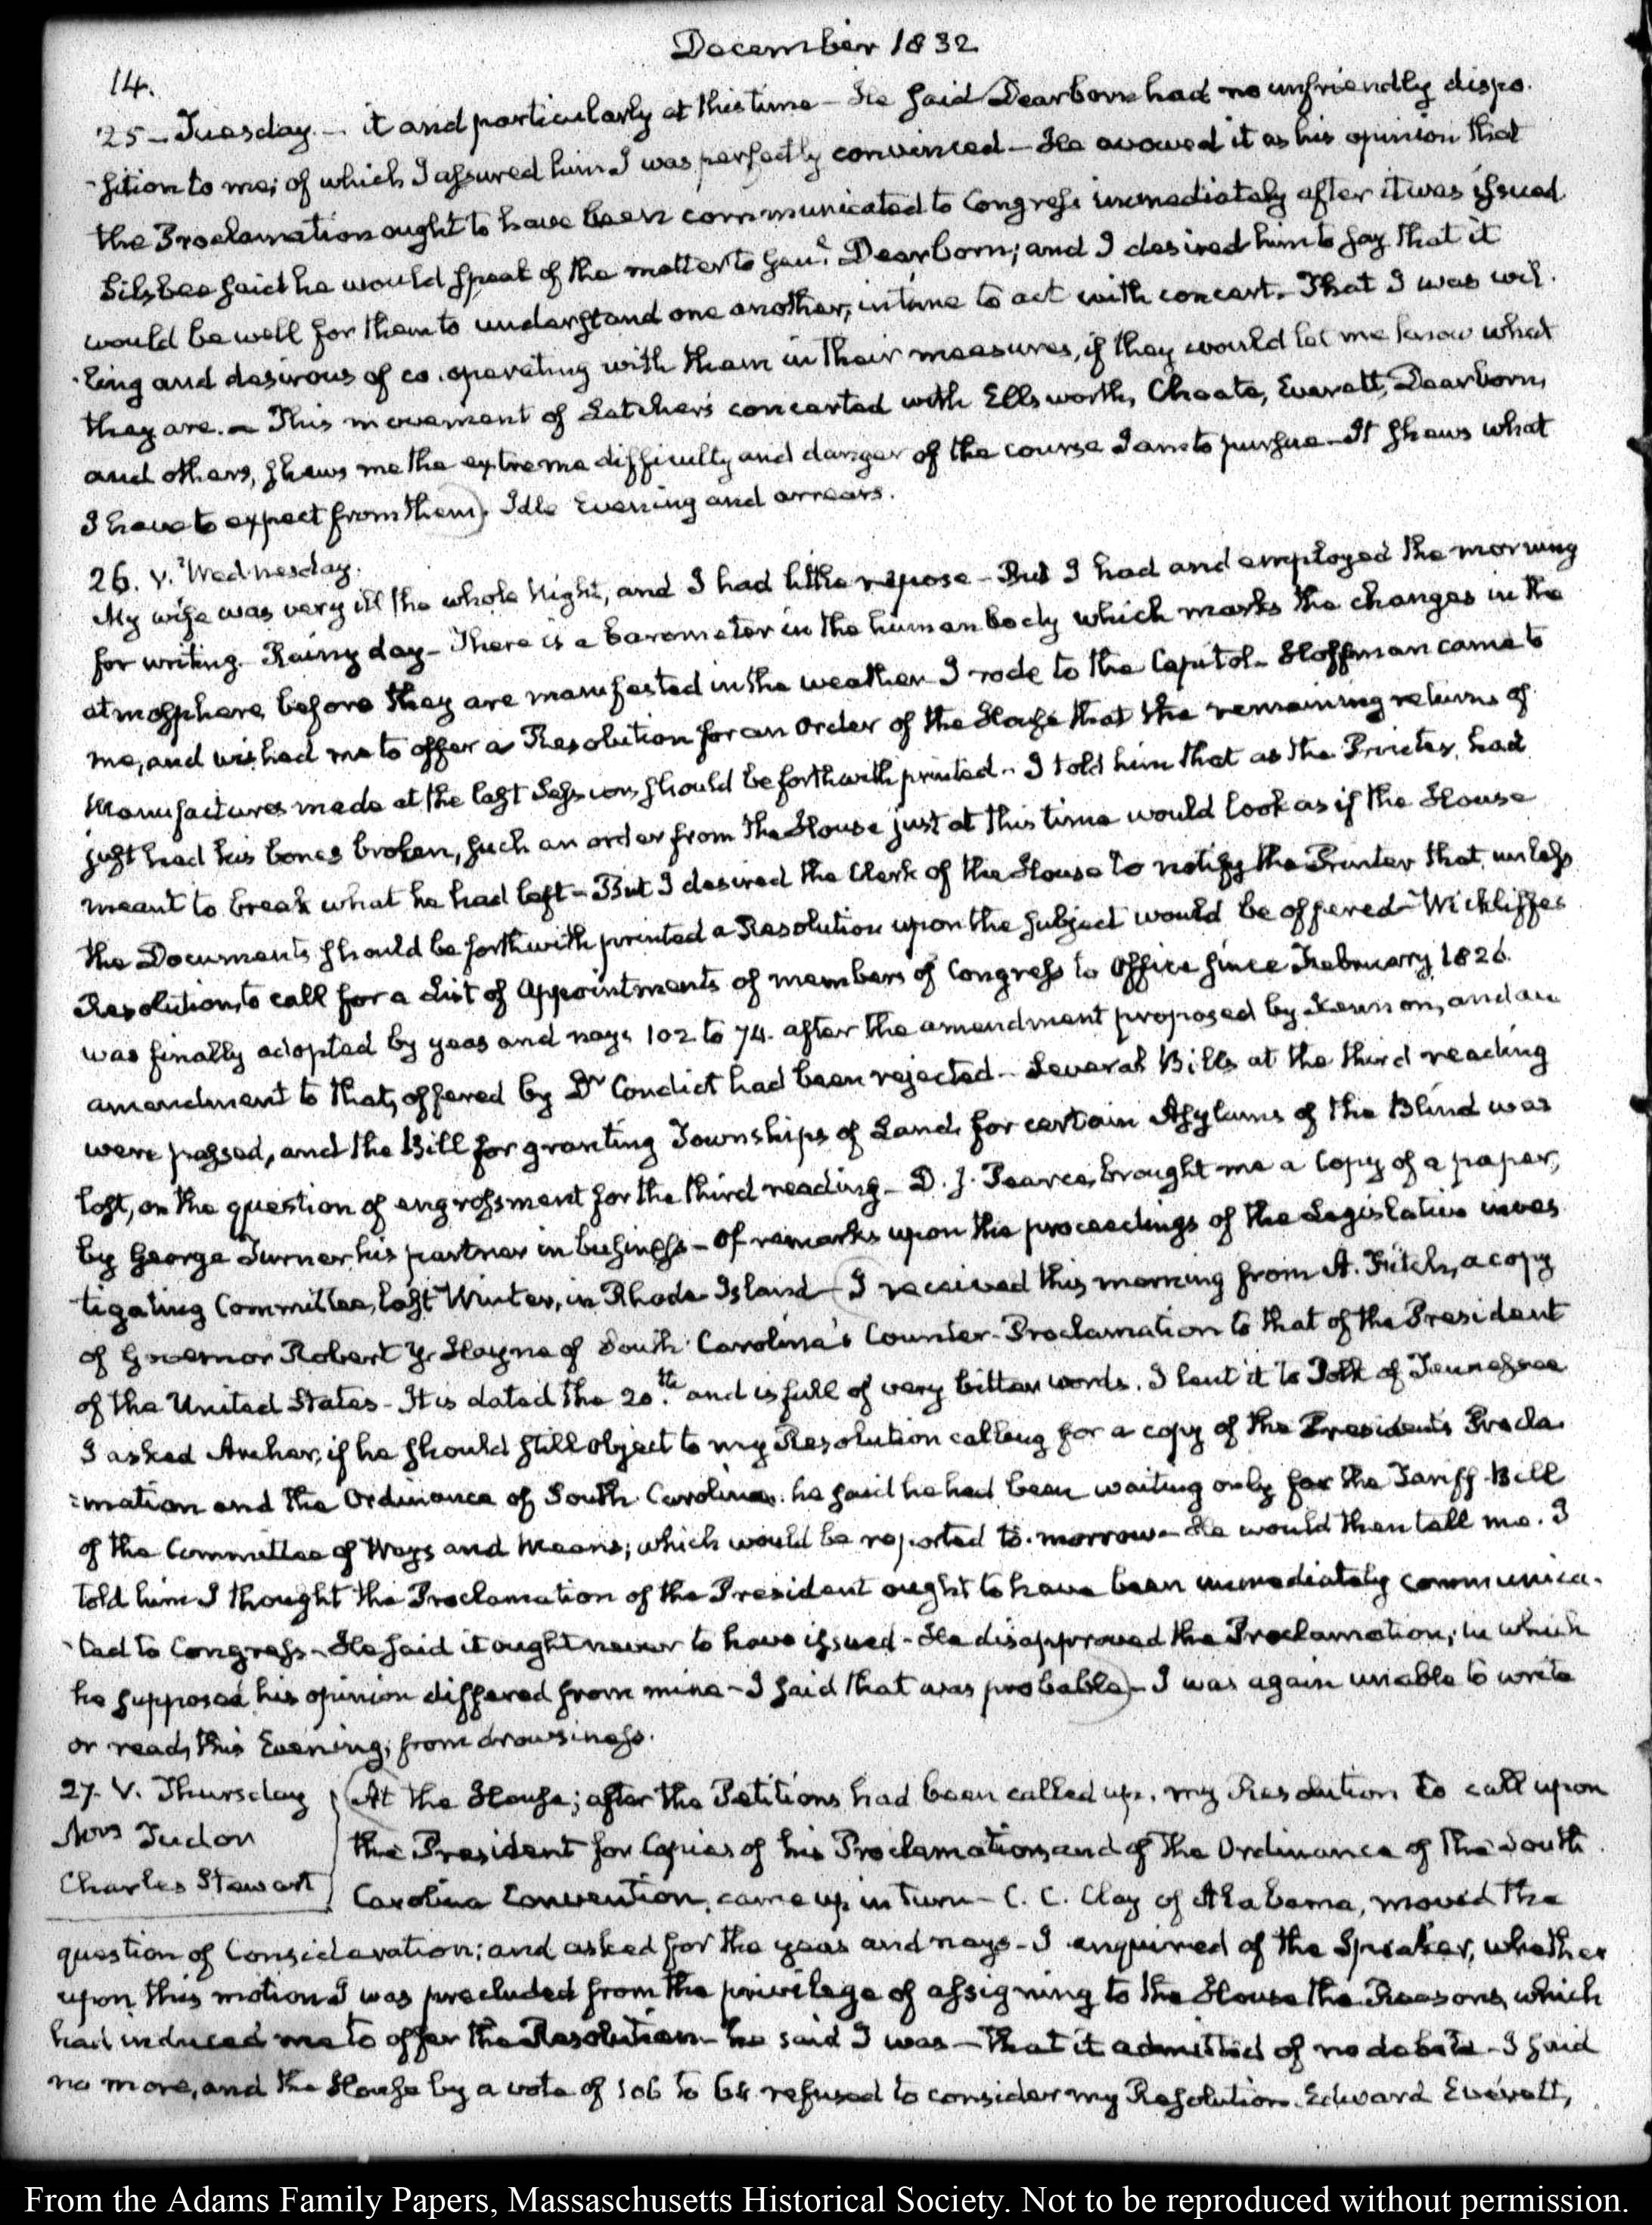 December 1832
14.
25 – Tuesday. – it and particularly at this time – He said Dearborn had no unfriendly dispo-
-sition to me; of which I assured him I was perfectly convinced – He avowed it as his opinion that
the Proclamation ought to have been communicated to Congress immediately after it was issued
Silsbee said he would speak of the matter to Genl. Dearborn; and I desired him to say that it
would be well for them to understand one another, in time to act with concert. That I was wil-
-ling and desirous of co-operating with them in their measures, if they would let me know what
they are. – This movement of Letcher's concerted with Ellsworth, Choate, Everett, Dearborn,
and others, shews me the extreme difficulty and danger of the course I am to pursue – It shews what
I have to expect from them). Idle Evening and arrears.
26. V. Wednesday.
My wife was very ill the whole Night, and I had little repose – But I had and employed the morning
for writing. Rainy day – There is a barometer in the human body which marks the changes in the
atmosphere before they are manifested in the weather. I rode to the Capitol – Hoffman came to
me, and wished me to offer a Resolution for an Order of the House that the remaining returns of
Manufactures made at the last Session should be forthwith printed – I told him that as the Printer, had
just had his bones broken, such an order from the House just at this time would look as if the House
meant to break what he had left – But I desired the Clerk of the House to notify the Printer that unless
the Documents should be forthwith printed a Resolution upon the subject would be offered – Wickliffes
Resolution, to call for a List of Appointments of members of Congress to Office since February 1826.
was finally adopted by yeas and nays 102 to 74. after the amendment proposed by Kennon, and an
amendment to that, offered by Dr Condict had been rejected – Several Bills at the third reading
were passed, and the Bill for granting Townships of Land for certain Asylums of the Blind was
lost, on the question of engrossment for the third reading – D. J. Pearce, brought me a Copy of a paper,
by George Turner his partner in business – of remarks upon the proceedings of the Legislative inves
tigating Committee, last Winter, in Rhode-Island – (I received this morning from A. Fitch, a copy
of Governor Robert Y. Hayne of South Carolina's Counter-Proclamation to that of the President
of the United States – It is dated the 20th. and is full of very bitter words. I lent it to Polk of Tennessee
I asked Archer, if he should still object to my Resolution calling for a copy of the Presidents Procla-
-mation and the Ordinance of South Carolina. he said he had been waiting only for the Tariff-Bill
of the Committee of Ways and Means; which would be reported to-morrow – He would then tell me. I
told him I thought the Proclamation of the President ought to have been immediately communica-
-ted to Congress – He said it ought never to have issued – He disapproved the Proclamation; in which
he supposed his opinion differed from mine – I said that was probable) – I was again unable to write
or read, this Evening, from drowsiness.
27. V. Thursday
Mrs Tudor
Charles Stewart
(At the House; after the Petitions had been called up. my Resolution to call upon
the President for Copies of his Proclamation, and of the Ordinance of the South
Carolina Convention, came up in turn – C. C. Clay of Alabama, moved the
question of Consideration; and asked for the yeas and nays – I enquired of the Speaker, whether
upon this motion I was precluded from the privilege of assigning to the House the Reasons, which
had induced me to offer the Resolution – he said I was – that it admitted of no debate – I said
no more, and the House by a vote of 106 to 64 refused to consider my Resolution. Edward Everett,
From the Adams Family Papers, Massachusetts Historical Society. Not to be reproduced without permission.